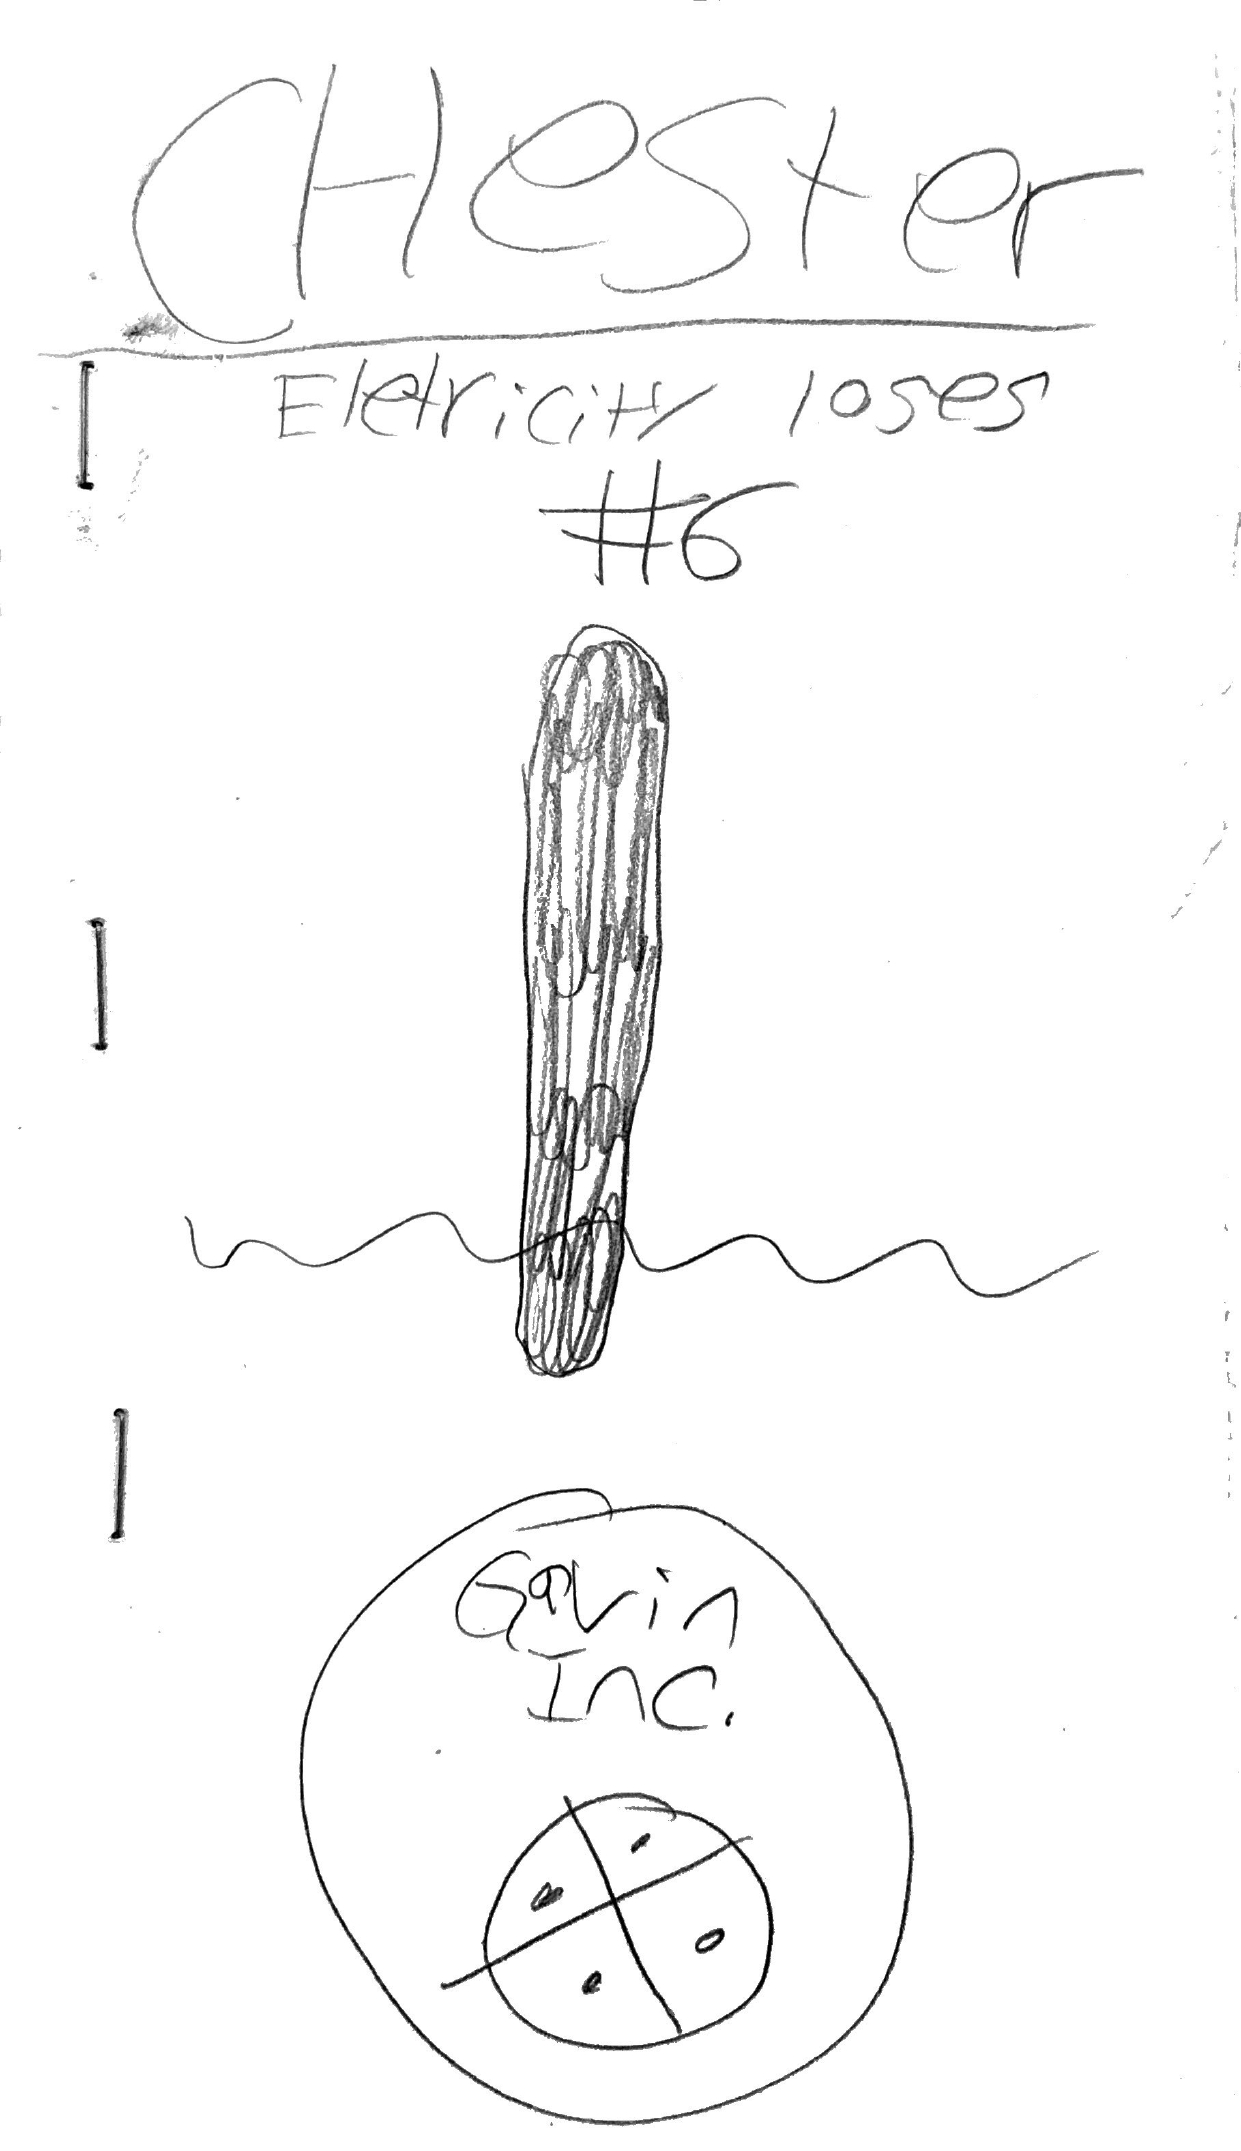 CHester
Eletricity loses
#6
Gavin
Inc.